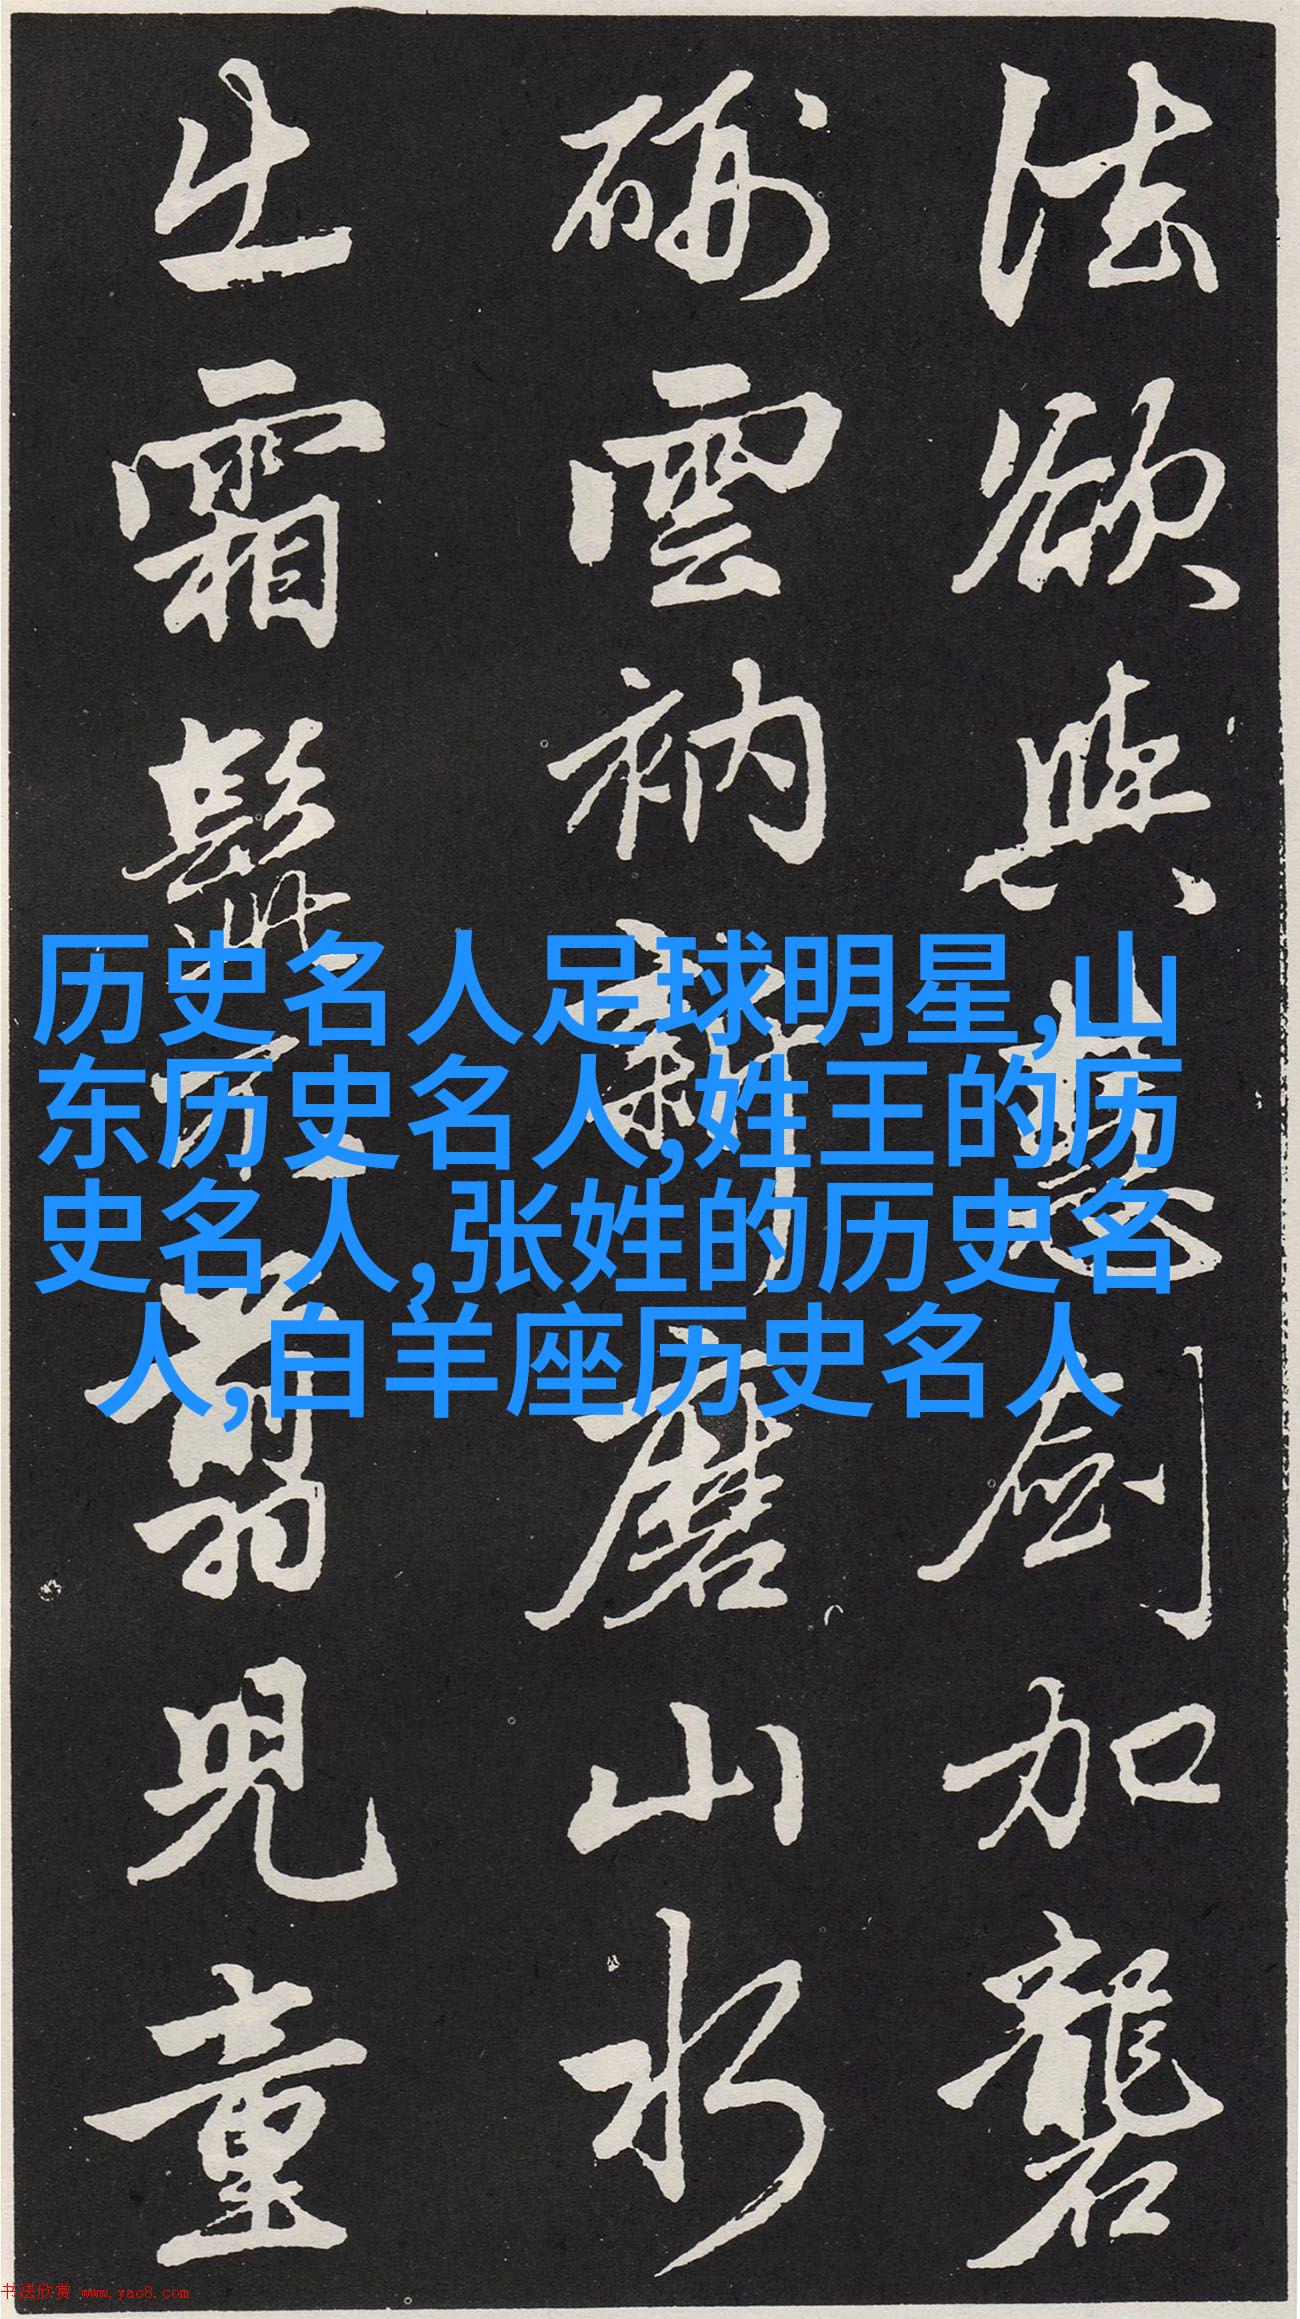 法欲與慧劍加礱
硎雲衲新磨山水
出霜髭不翦兒童
历史名人足球明星,山
东历史名人,姓王的历
史名人,张姓的历史名
人,白羊座历史名人
书法欣赏 www.yac8.com